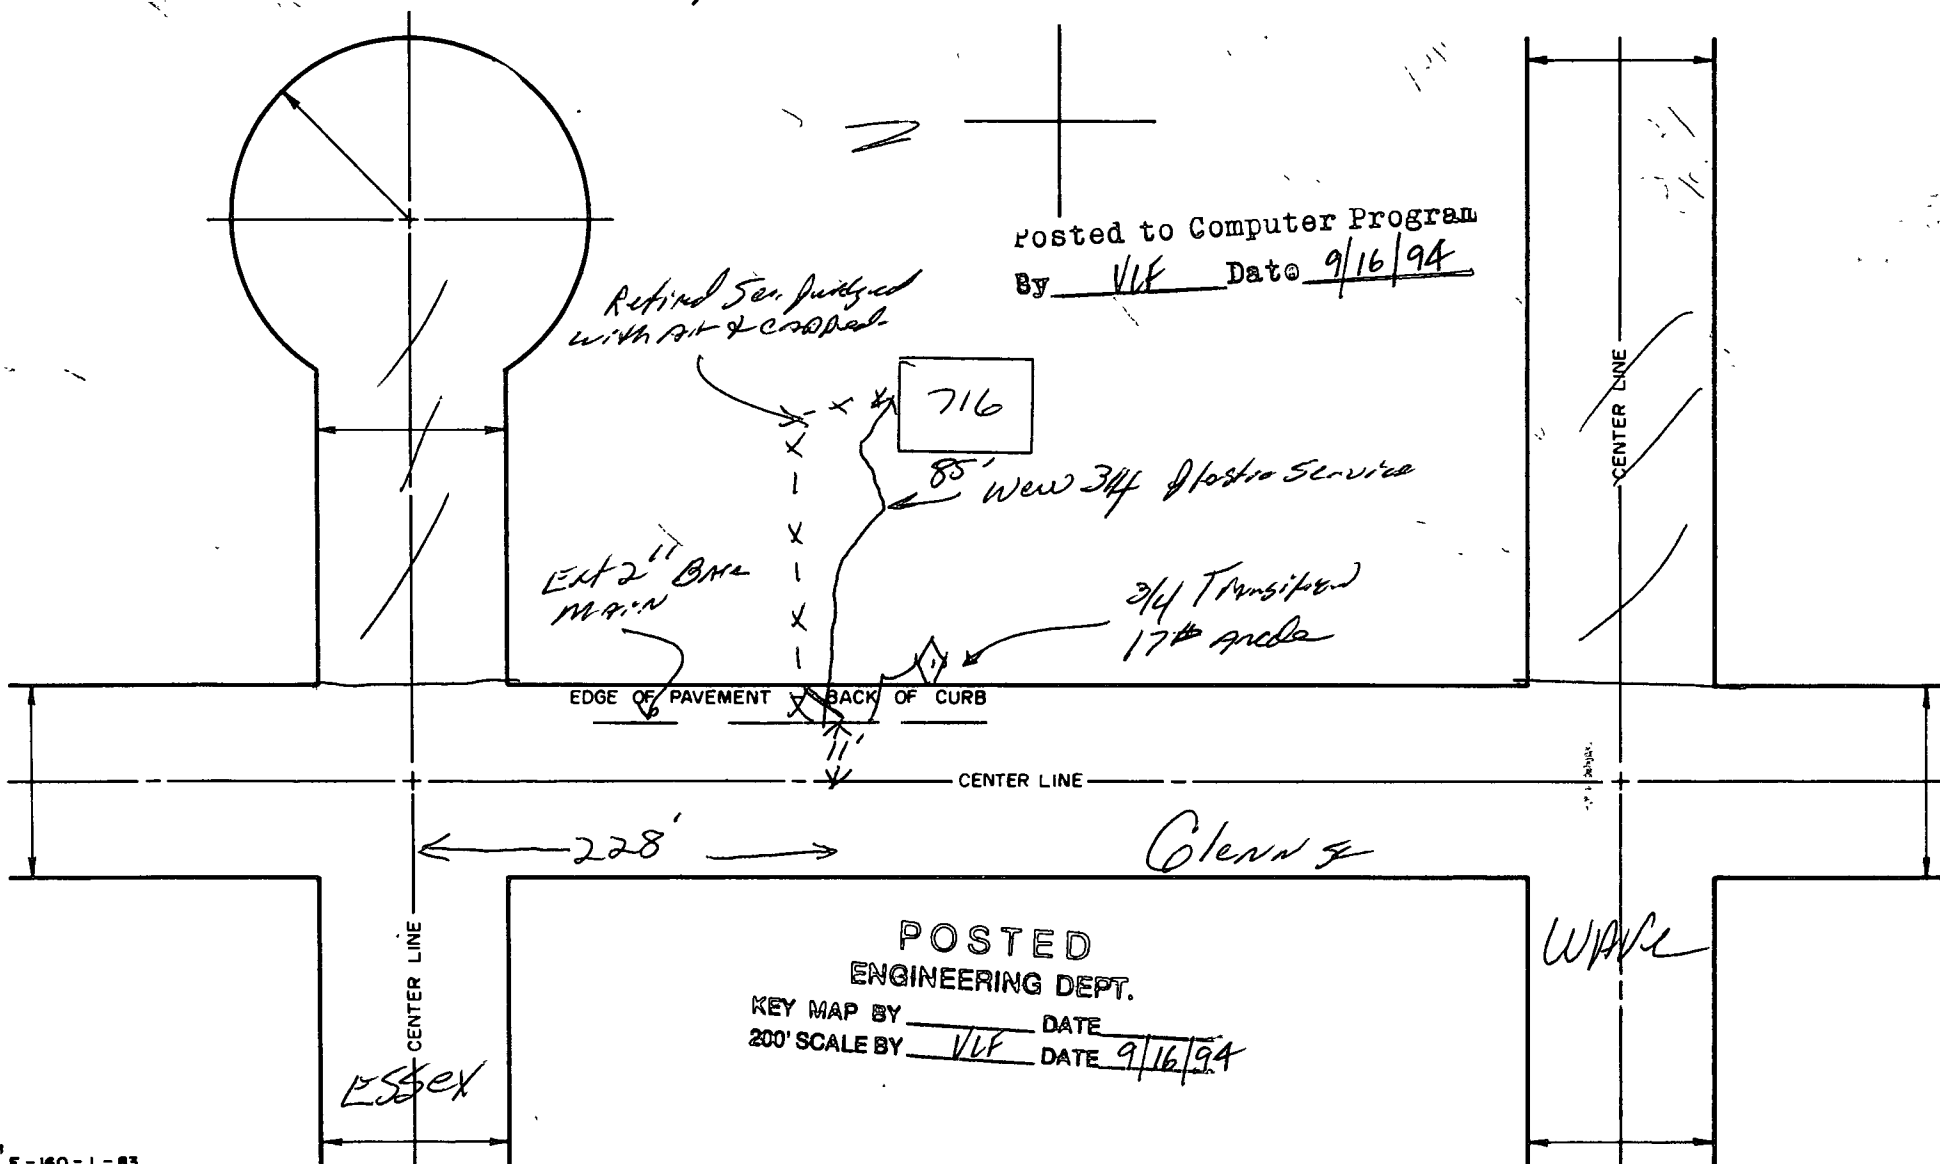 Posted to Computer Program
By VLF Date 9/16/94
Retired Ser. purged
with Air & capped.
716
85' New 3/4 Plastic Service
Ext 2" Bare
Main
3/4 Transition
17# Anode
EDGE OF PAVEMENT
BACK OF CURB
11'
CENTER LINE
CENTER LINE
228'
Glenn St
POSTED
ENGINEERING DEPT.
KEY MAP BY DATE
200' SCALE BY VLF DATE 9/16/94
CENTER LINE
ESSEX
E-160-1-83